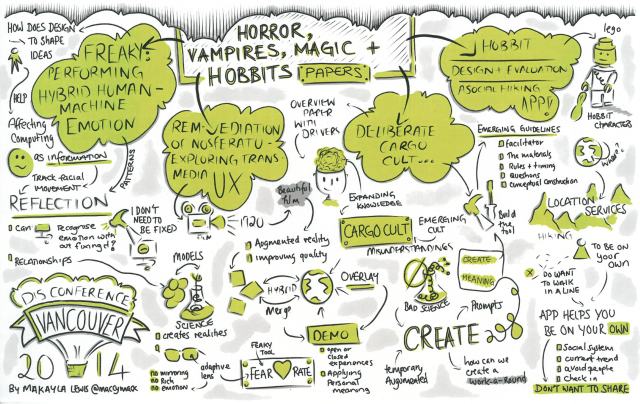 HORROR,
VAMPIRES, MAGIC +
HOBBITS PAPERS
HOW DOES DESIGN
TO SHAPE
IDEAS
HELP
Affecting
Computing
FREAKY:
PERFORMING
HYBRID HUMAN-
MACHINE
EMOTION
as information
TRACK-FACIAL
MOVEMENT
PATTERNS
REFLECTION
Can
Recognise
emotion with
out funny'd?
RELATIONSHIPS
I DON'T
NEED TO
BE FIXED
REM-VEDIATION
OF NOSFERATU-
EXPLORING TRANS
MEDIA UX
FILM
1920
Beautiful
film
Augmented reality
improving quality
HYBRID
Merge
OVERLAY
DEMO
open or
closed
experiences
Applying
Personal
meaning
MODELS
SCIENCE
creates realities
no mirroring
no Rich
no EMOTION
adaptive
lens
FEAKY
TOOL
FEAR RATE
OVERVIEW
PAPER
WITH
DRIVERS
DELIBERATE
CARGO
CULT...
EXPANDING
KNOWLEDGE
CARGO CULT
EMERGING
CULT
MISUNDERSTANDINGS
BAD SCIENCE
CREATE
MEANING
Build
the tool
Prompts
CREATE
temporary
Augmented
how can we
create a
work-a-round
HOBBIT
DESIGN + EVALUATION
ASOCIAL HIKING
APP!!
lego
HOBBIT
CHARACTERS
EMERGING GUIDELINES
facilitator
The materials
Rules + timing
questions
conceptual construction
where?
LOCATION
SERVICES
HIKING
TO BE ON
YOUR OWN
DO WANT
TO WALK
IN A LINE
APP HELPS YOU
BE ON YOUR OWN
Social system
current trend
avoid people
Check in
DON'T WANT TO SHARE
DIS CONFERENCE
VANCOUVER
2014
BY MAKAYLA LEWIS @maccymacx